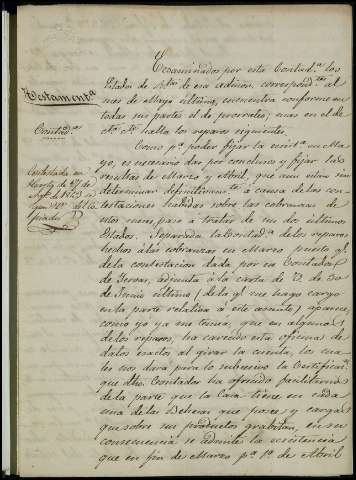 Testament.ª
Contad.ª
Contestada en
Huerta de 27 de
Agt.º de 1829
Ecsaminados por esta Contad.ª los
Estados de de esa admon. correspond.tes al
mes de Mayo ultimo, encuentra conforme en
todas sus partes el de prorrateo; mas en el de
halla los reparos siguientes.
Como p.ª poder fijar la ecsist.ª en Ma-
yo, es necesario dar por concluso y fijar la
resultas de Marzo y Abril, que aun estan sin
determinar definitivam.te á causa de las con-
testaciones habidas sobre las cobranzas de
estos meses, paso á tratar de sus dos ultimos
Estados. Separada la Contad.ª de los reparos
hechos á las cobranzas en Marzo puesto q.e
de la contestacion dada por su Contador
de Teruar, adjunta á la carta de V. de 30
de Junio ultimo (de la q.e me hago cargo
en la parte relativa á este asunto) aparece,
como yo ya me temia, que en algunos
de los reparos, ha carecido esta oficina de
datos exactos al girar la cuenta, los cua-
les nos dará para lo subcesivo la Certificac.n
que dho. Contador ha ofrecido facilitarnos
de la parte que la Casa tiene en cada
una de las Dehesas que posee y cargas
que sobre sus productos gravitan, en su
consecuencia se admite la ecsistencia
que en fin de Marzo p.ª 1.º de Abril